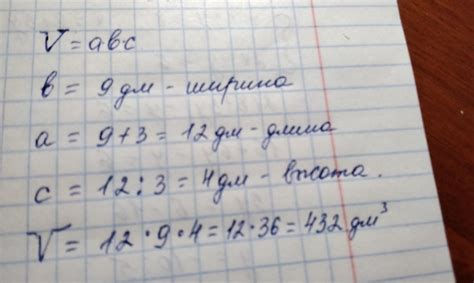 V = abc
b = 9 дм - ширина
a = 9 + 3 = 12 дм - длина
c = 12 : 3 = 4 дм - высота.
V = 12 · 9 · 4 = 12 · 36 = 432 дм³